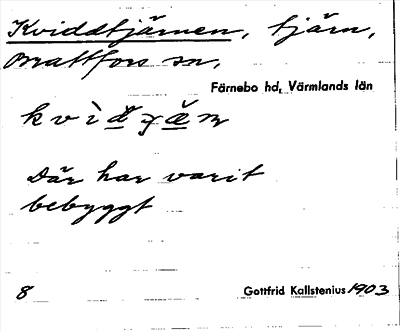 Kviddtjärnen, tjärn,
Brattfors sn.
Färnebo hd, Värmlands län
Där har varit
bebyggt
8 Gottfrid Kallstenius 1903